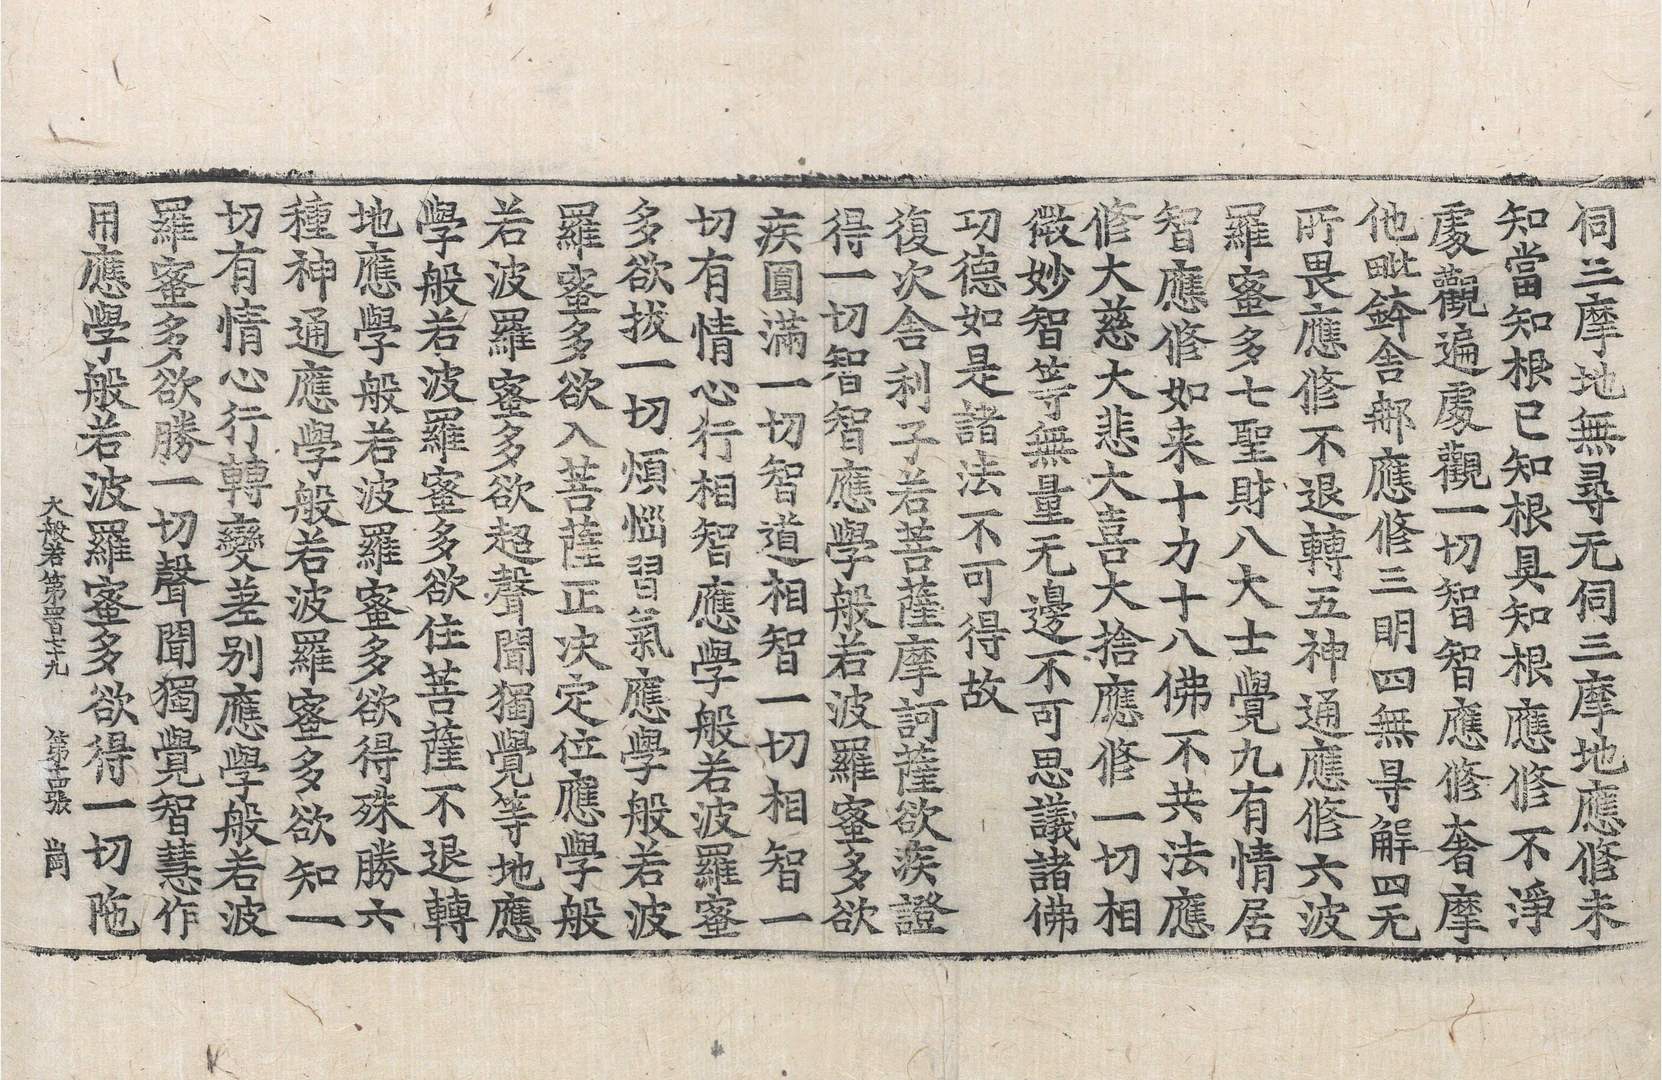 伺三摩地無尋无伺三摩地應修未
知當知根已知根具知根應修不淨
處觀遍處觀一切智智應修奢摩
他毗鉢舍那應修三明四無㝵解四无
所畏應修不退轉五神通應修六波
羅蜜多七聖財八大士覺九有情居
智應修如来十力十八佛不共法應
修大慈大悲大喜大捨應修一切相
微妙智等無量无邊不可思議諸佛
功德如是諸法不可得故
復次舍利子若菩薩摩訶薩欲疾證
得一切智智應學般若波羅蜜多欲
疾圓滿一切智道相智一切相智一
切有情心行相智應學般若波羅蜜
多欲拔一切煩惱習氣應學般若波
羅蜜多欲入菩薩正决定位應學般
若波羅蜜多欲超聲聞獨覺等地應
學般若波羅蜜多欲住菩薩不退轉
地應學般若波羅蜜多欲得殊勝六
種神通應學般若波羅蜜多欲知一
切有情心行轉變差别應學般若波
羅蜜多欲勝一切聲聞獨覺智慧作
用應學般若波羅蜜多欲得一切陁
大般若第四百七十九 第十四張 崗